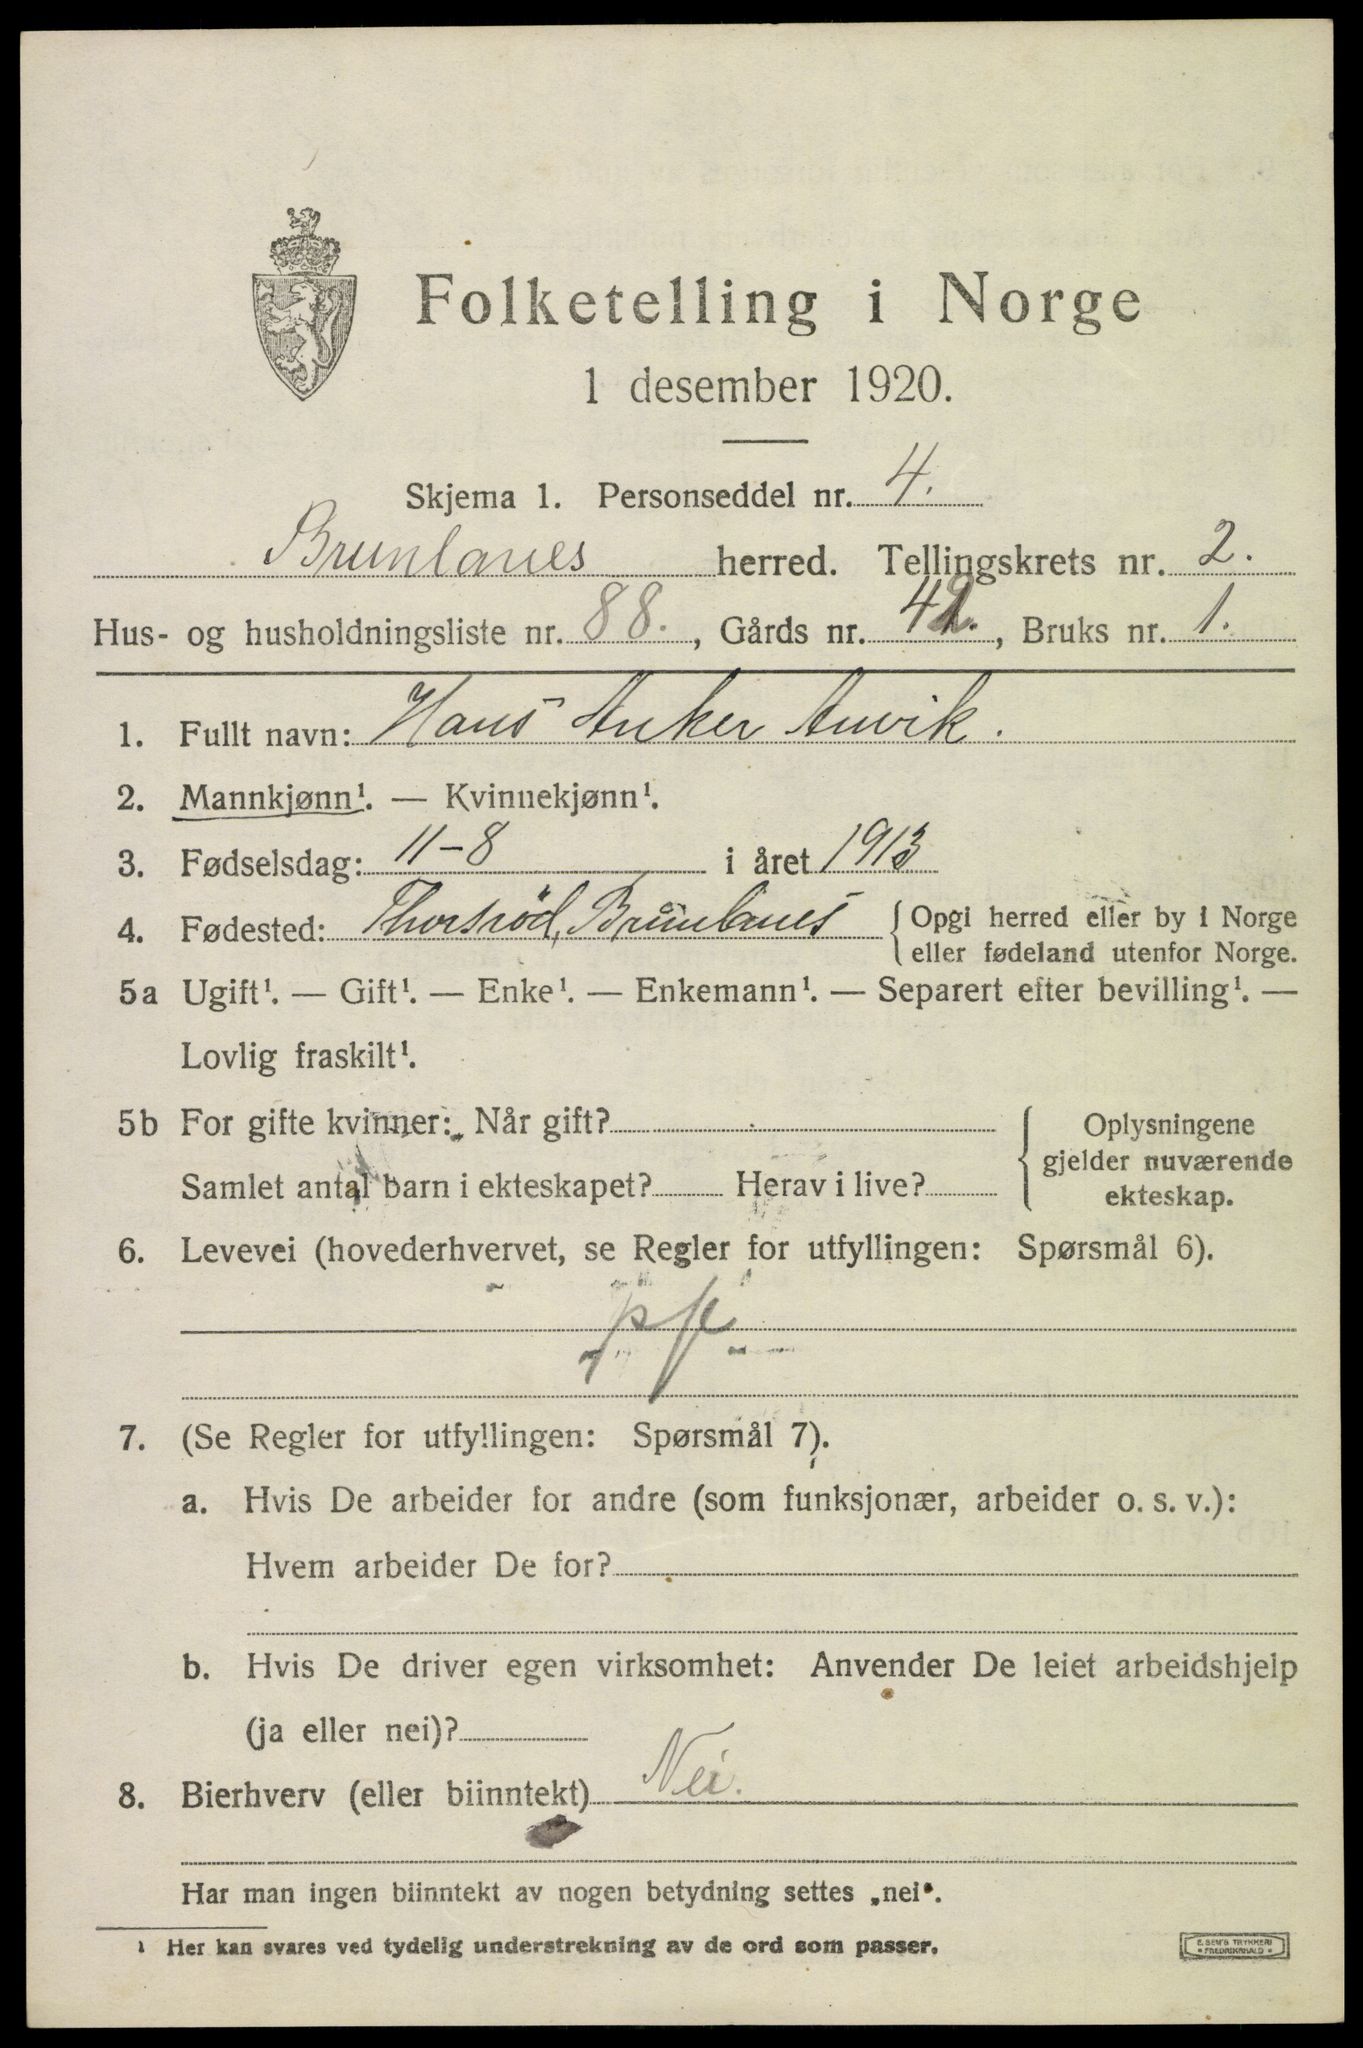 Folketelling i Norge
1 desember 1920.
Skjema 1. Personseddel nr. 4.
Brunlanes herred. Tellingskrets nr. 2.
Hus- og husholdningsliste nr. 88., Gårds nr. 42., Bruks nr. 1.
1. Fullt navn: Hans Anker Anvik.
2. Mannkjønn¹. — Kvinnekjønn¹.
3. Fødselsdag: 11-8 i året 1913
4. Fødested: Thorsrød, Brunlanes { Opgi herred eller by i Norge
eller fødeland utenfor Norge.
5a Ugift¹. — Gift¹. — Enke¹. — Enkemann¹. — Separert efter bevilling¹. —
Lovlig fraskilt¹.
5b For gifte kvinner: Når gift?
Samlet antal barn i ekteskapet? Herav i live?
{ Oplysningene
gjelder nuværende
ekteskap.
6. Levevei (hovederhvervet, se Regler for utfyllingen: Spørsmål 6).
7. (Se Regler for utfyllingen: Spørsmål 7).
a. Hvis De arbeider for andre (som funksjonær, arbeider o. s. v.):
Hvem arbeider De for?
b. Hvis De driver egen virksomhet: Anvender De leiet arbeidshjelp
(ja eller nei)?
8. Bierhverv (eller biinntekt) Nei.
Har man ingen biinntekt av nogen betydning settes „nei“.
¹ Her kan svares ved tydelig understrekning av de ord som passer.
E. SEM'S TRYKKERI
FREDRIKSHALD